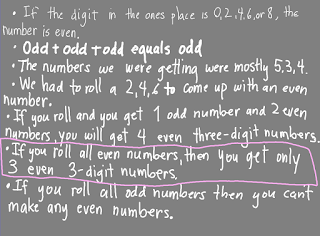 • If the digit in the ones place is 0,2,4,6,or 8, the
number is even.
• Odd + odd + odd equals odd
• The numbers we were getting were mostly 5,3,4.
• We had to roll a 2,4,6 to come up with an even
number.
• If you roll and you get 1 odd number and 2 even
numbers you will get 4 even three-digit numbers.
• If you roll all even numbers, then you get only
3 even 3-digit numbers.
• If you roll all odd numbers then you can't
make any even numbers.